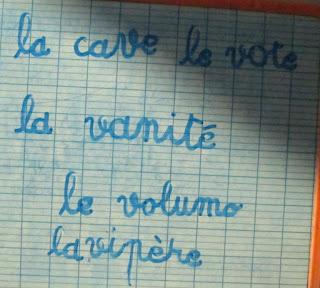 la cave le vote
la vanité
le volume
la vipère